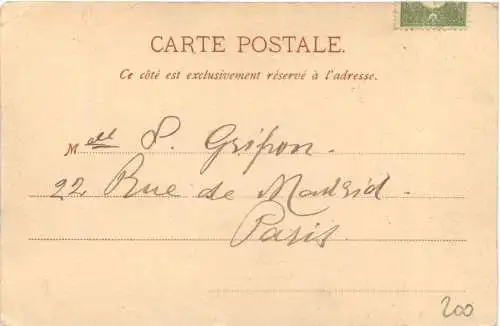 CARTE POSTALE.
Ce côté est exclusivement réservé à l'adresse.
Mdlle S. Grifon.
22 Rue de Madrid.
Paris
200